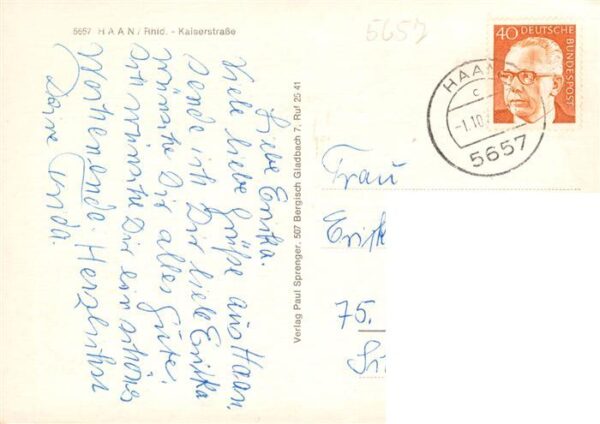 5657 HAAN / Rhld. - Kaiserstraße
5657
40 DEUTSCHE BUNDESPOST
HAAN
c
-1.10.
5657
Liebe Erika.
Viele liebe Grüße aus Haan,
sende ich Dir liebe Erika
wünsche Dir alles Gute.
Ich wünsche Dir ein schönes
Wochenende. Herzlichst
Verlag Paul Sprenger, 507 Bergisch Gladbach 7, Ruf 25 41
Frau
75.